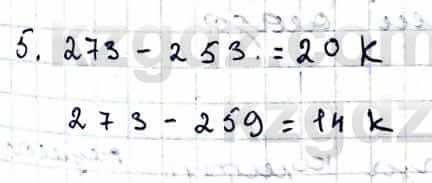 5. 273 - 253. = 20 K
273 - 259 = 14 K